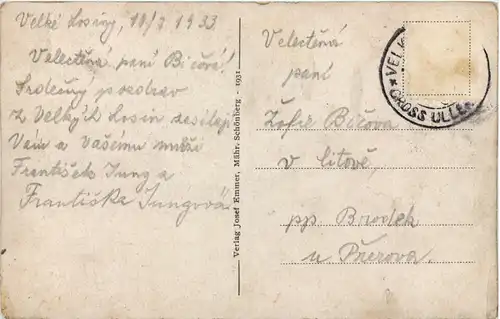 Velké Losiny, 11/2 1933
Velectěná paní Bičová!
Srdečný pozdrav
z Velkých Losin zasílají
Vám a Vašemu muži
František Jung a
Františka Jungová
Verlag Josef Emmer, Mähr. Schönberg. - 1931
Velectěná
paní
Žofie Bičova
v
pp. Brodek
u Přerova.
GROSS ULLE